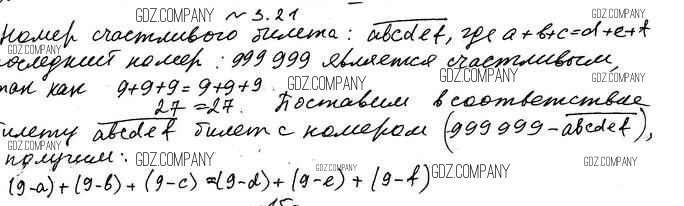 № 3.21 GDZ.COMPANY
Номер счастливого билета: abcdef, где a+b+c=d+e+f
GDZ.COMPANY GDZ.COMPANY
последний номер: 999 999 является счастливым,
так как 9+9+9=9+9+9 GDZ.COMPANY GDZ.COMPANY
27=27. Поставим в соответствие
GDZ.COMPANY
билету abcdef билет с номером (999 999-abcdef),
получим: GDZ.COMPANY GDZ.COMPANY
GDZ.COMPANY GDZ.COMPANY
(9-a)+(9-b)+(9-c)=(9-d)+(9-e)+(9-f) GDZ.COMPANY
GDZ.COMPANY